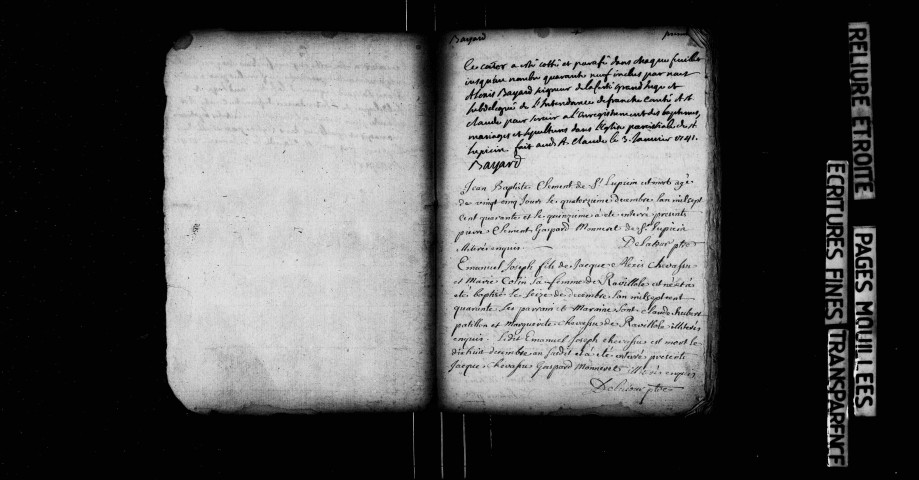 Bayard
premier
le cahier a esté cotté et parafé dans chaque feuillet
jusqu'au nombre quarante neuf inclus par nous
Alexis Bayard seigneur de la ferté grand Juge et
subdelegué de L'Intendance de franche Comté a St
claude pour servir a L'enregistrement des baptemes,
mariages et sepultures dans L'Eglise paroissiale de St
Lupicin fait aud. St. Claude le 3. Janvier 1741.
Bayard
Jean Baptiste Clement de St Lupicin est mort agé
de vingt cinq Jours le quatorzieme decembre l'an mil sept
cent quarante et le quinzieme a eté enterré presents
pierre Clement Gaspard Monneret de St Lupicin
illiterés enquis.
ptre
Emanuel Joseph fils de Jacque Alexis Chevassu
et Marie Colin sa femme de Ravillole est né et a
eté baptisé le seize de decembre l'an mil sept cent
quarante ses parrain et Marrine sont claude hubert
patillon et Marguerite Chevassu de Ravillole illiterés
enquis. ledit Emanuel Joseph chevassus est mort le
dixhuit decembre an susdit et a eté enterré presents
Jacque Chevassus Gaspard Monneret illiterés enquis
ptre
RELIURE ETROITE
PAGES MOUILLEES
ECRITURES FINES
TRANSPARENCE